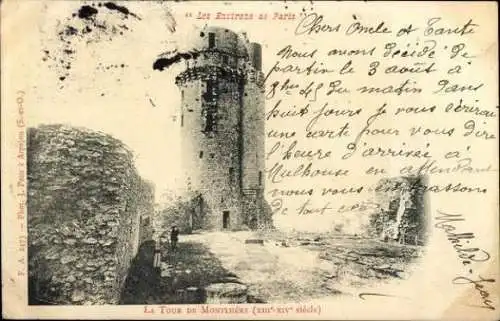 " Les Environs de Paris "
Chers Oncle et Tante
nous avons décidé de
partir le 3 août à
8 hes 45 du matin dans
huit jours je vous écrirai
une carte pour vous dire
l'heure d'arrivée à
Mulhouse en attendant
nous vous embrassons
de tout
Mathilde-Georg
F. A. 2473 — Phot. J. à Arpajon (S.-et-O.)
La Tour de Montlhéry (XIIIe-XIVe siècle)